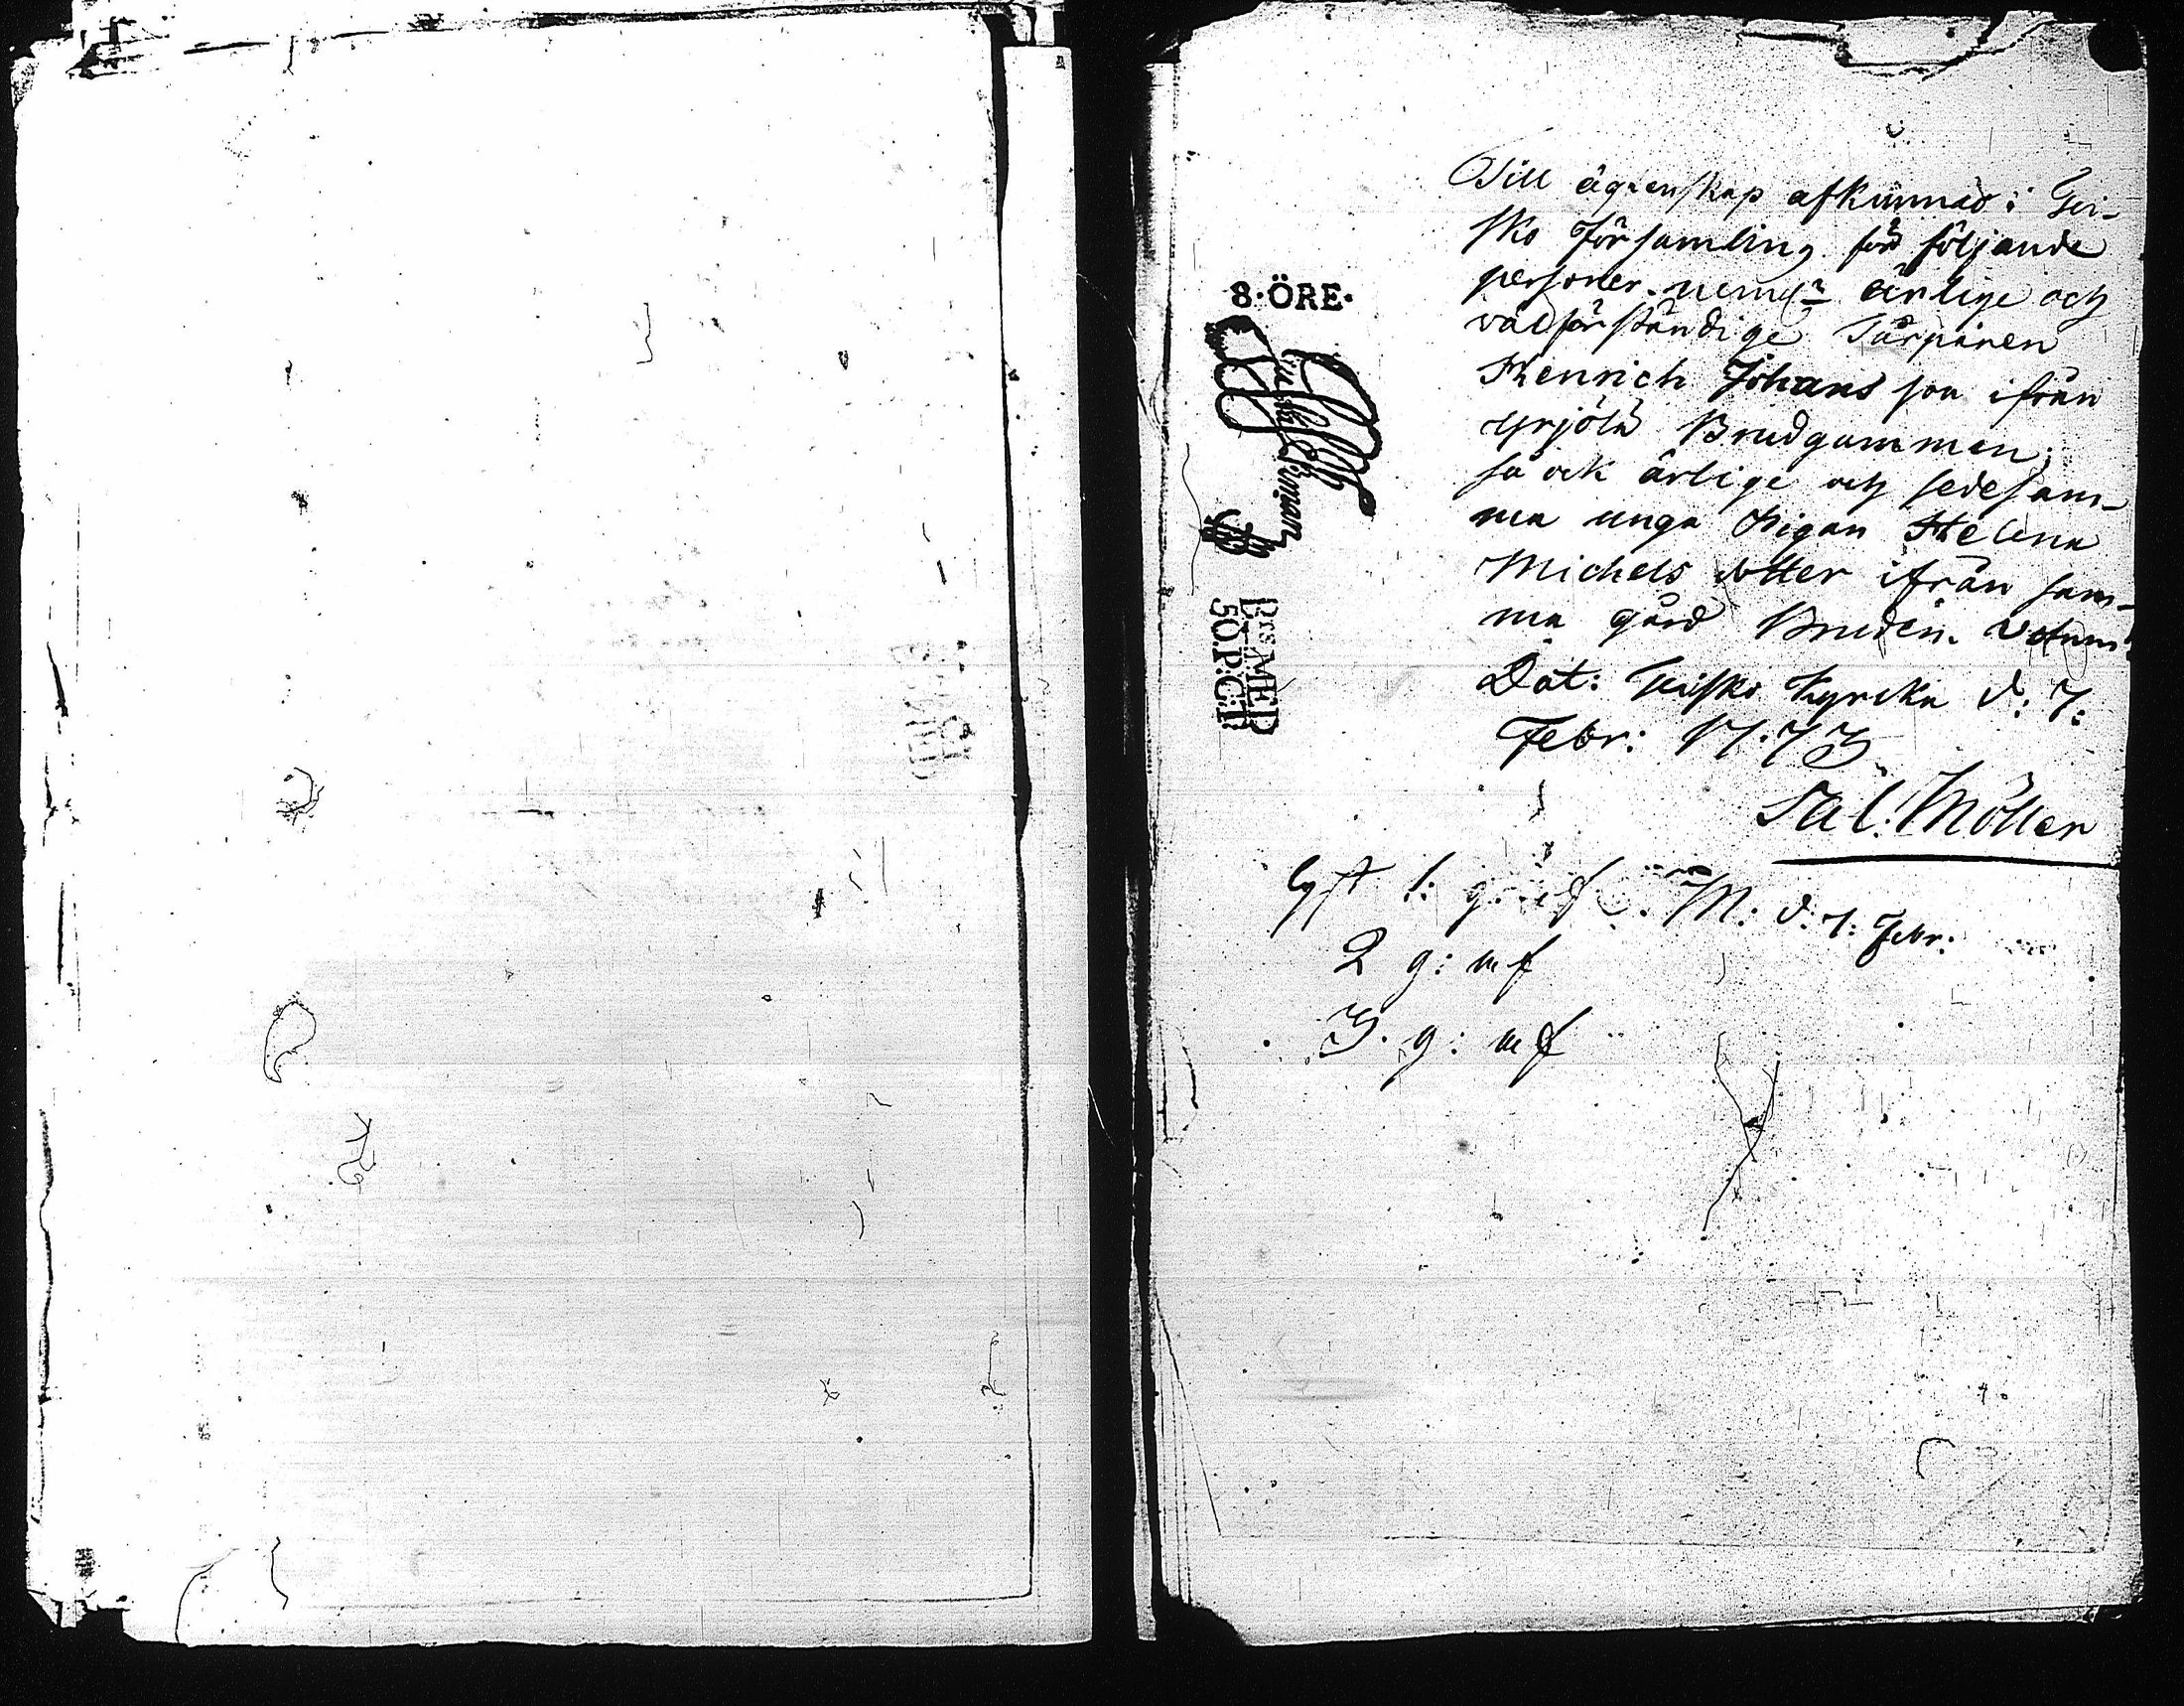 8·ÖRE·
50.P:C:T
Till ägtenskap afkunnas i Gvi-
sko Församling för följande
personer. neml: ärlige och
välförståndige Tårparen
Henrich Johansson ifrån
Yrjölä Brudgummen;
så ock ärlige och sedesam-
ma unga Pigan Helena
Michels dotter ifrån sam-
ma gård Bruden.
Dat: Kyrcka d: 7:
Febr: 1773
Sal: Möller
lyst 1: g: M: d: 7: Febr:
2 g: uf
3. g: uf